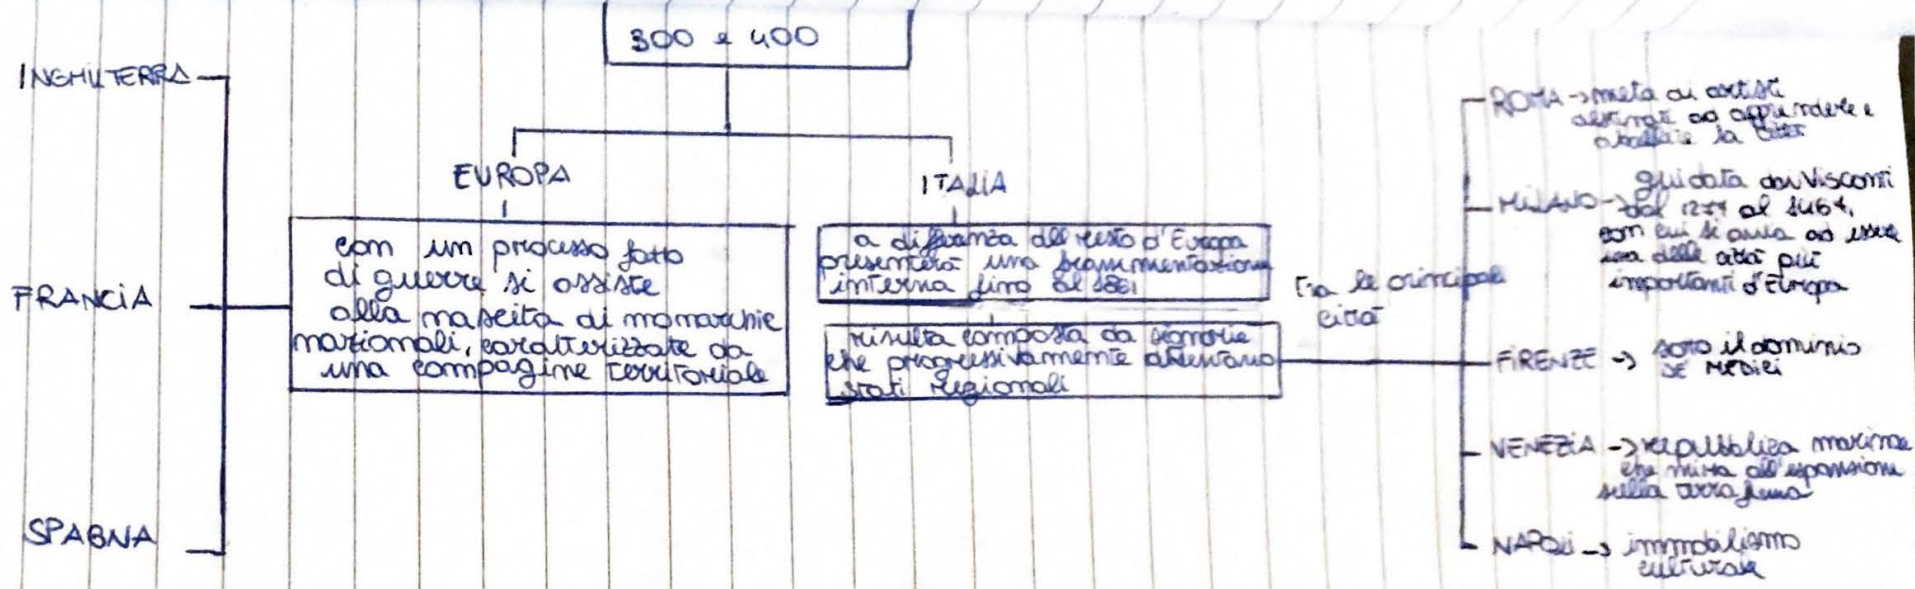 300 e 400
EUROPA
con un processo fatto
di guerre si assiste
alla nascita di monarchie
nazionali, caratterizzate da
una compagine territoriale
INGHILTERRA
FRANCIA
SPAGNA
ITALIA
a differenza del resto d'Europa
presenterà una frammentazione
interna fino al 1861
risulta composta da signorie
che progressivamente diventano
stati regionali
Tra le principali
città
ROMA -> meta di artisti
ad apprendere e
abbellire la città
MILANO -> guidata dai Visconti
dal 1277 al
con cui si avvia ad essere
una delle città più
importanti d'Europa
FIRENZE -> sotto il dominio
DE' MEDICI
VENEZIA -> repubblica marinara
che mira all'espansione
sulla terra ferma
NAPOLI -> immobilismo
culturale